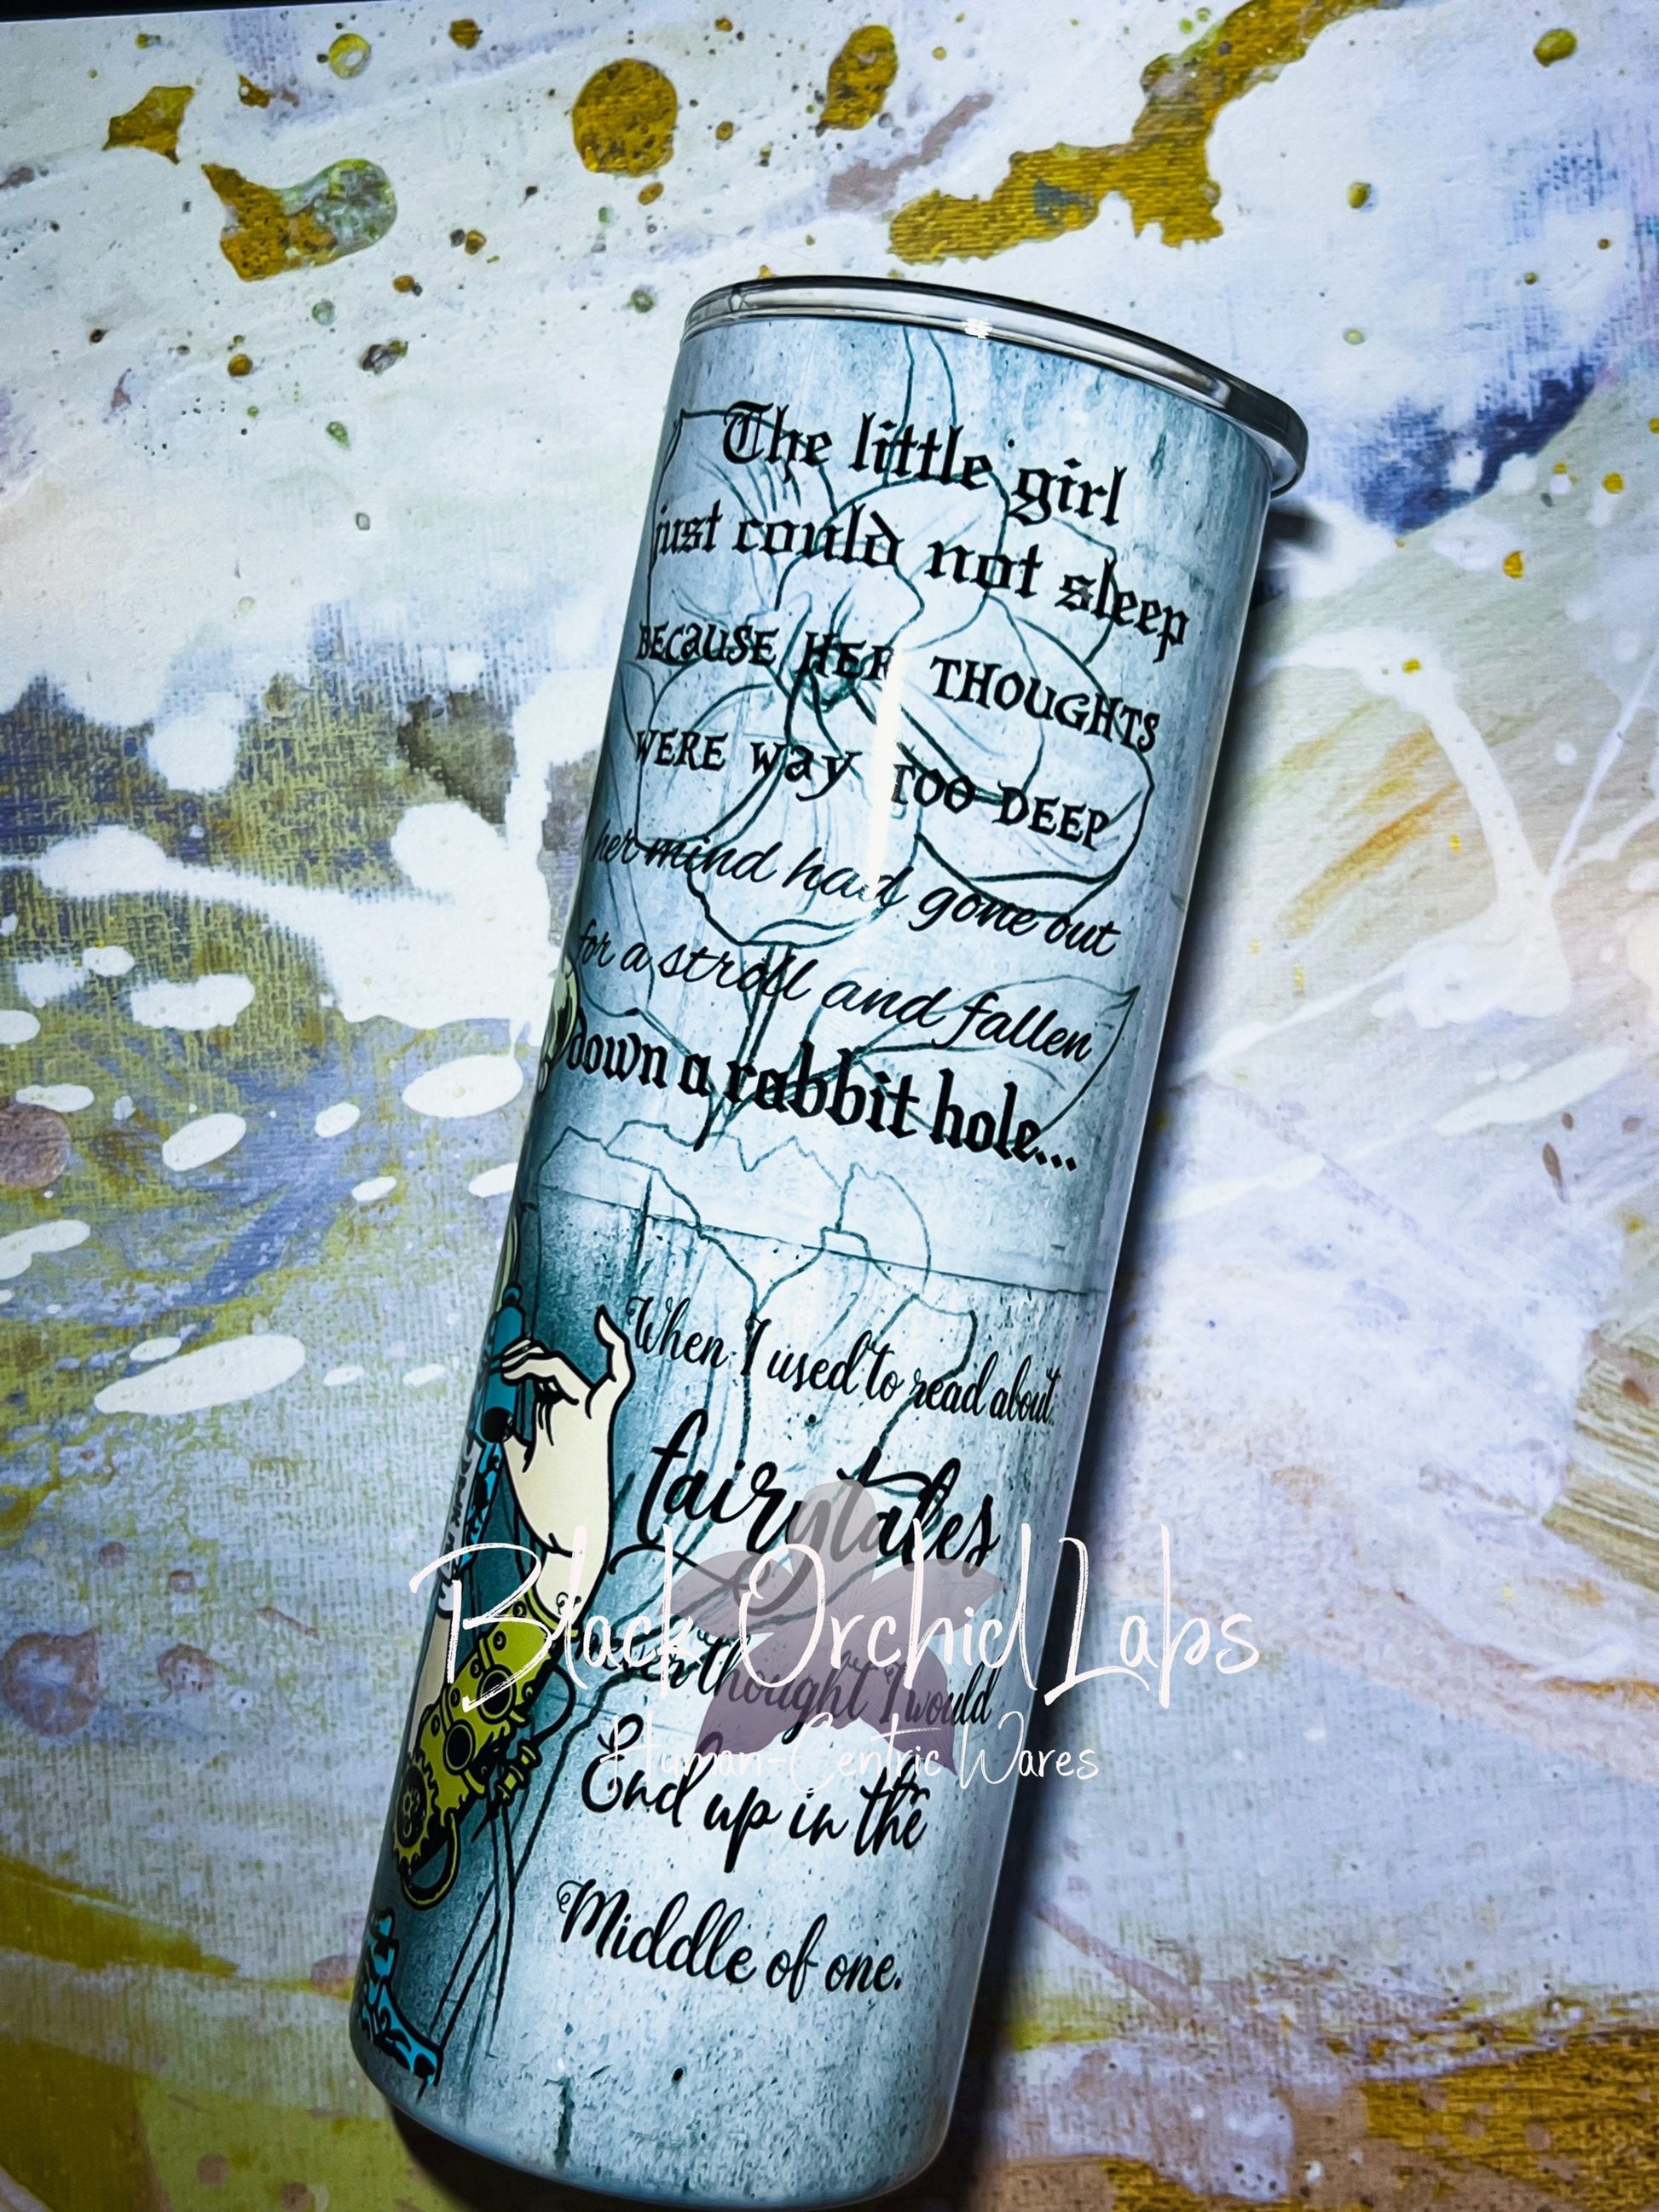 The little girl
just could not sleep
BECAUSE HER THOUGHTS
WERE WAY TOO DEEP
her mind had gone out
for a stroll and fallen
down a rabbit hole...
When I used to read about
fairytales
never thought I would
End up in the
Middle of one.
Black Orchid Labs
Human-Centric Wares